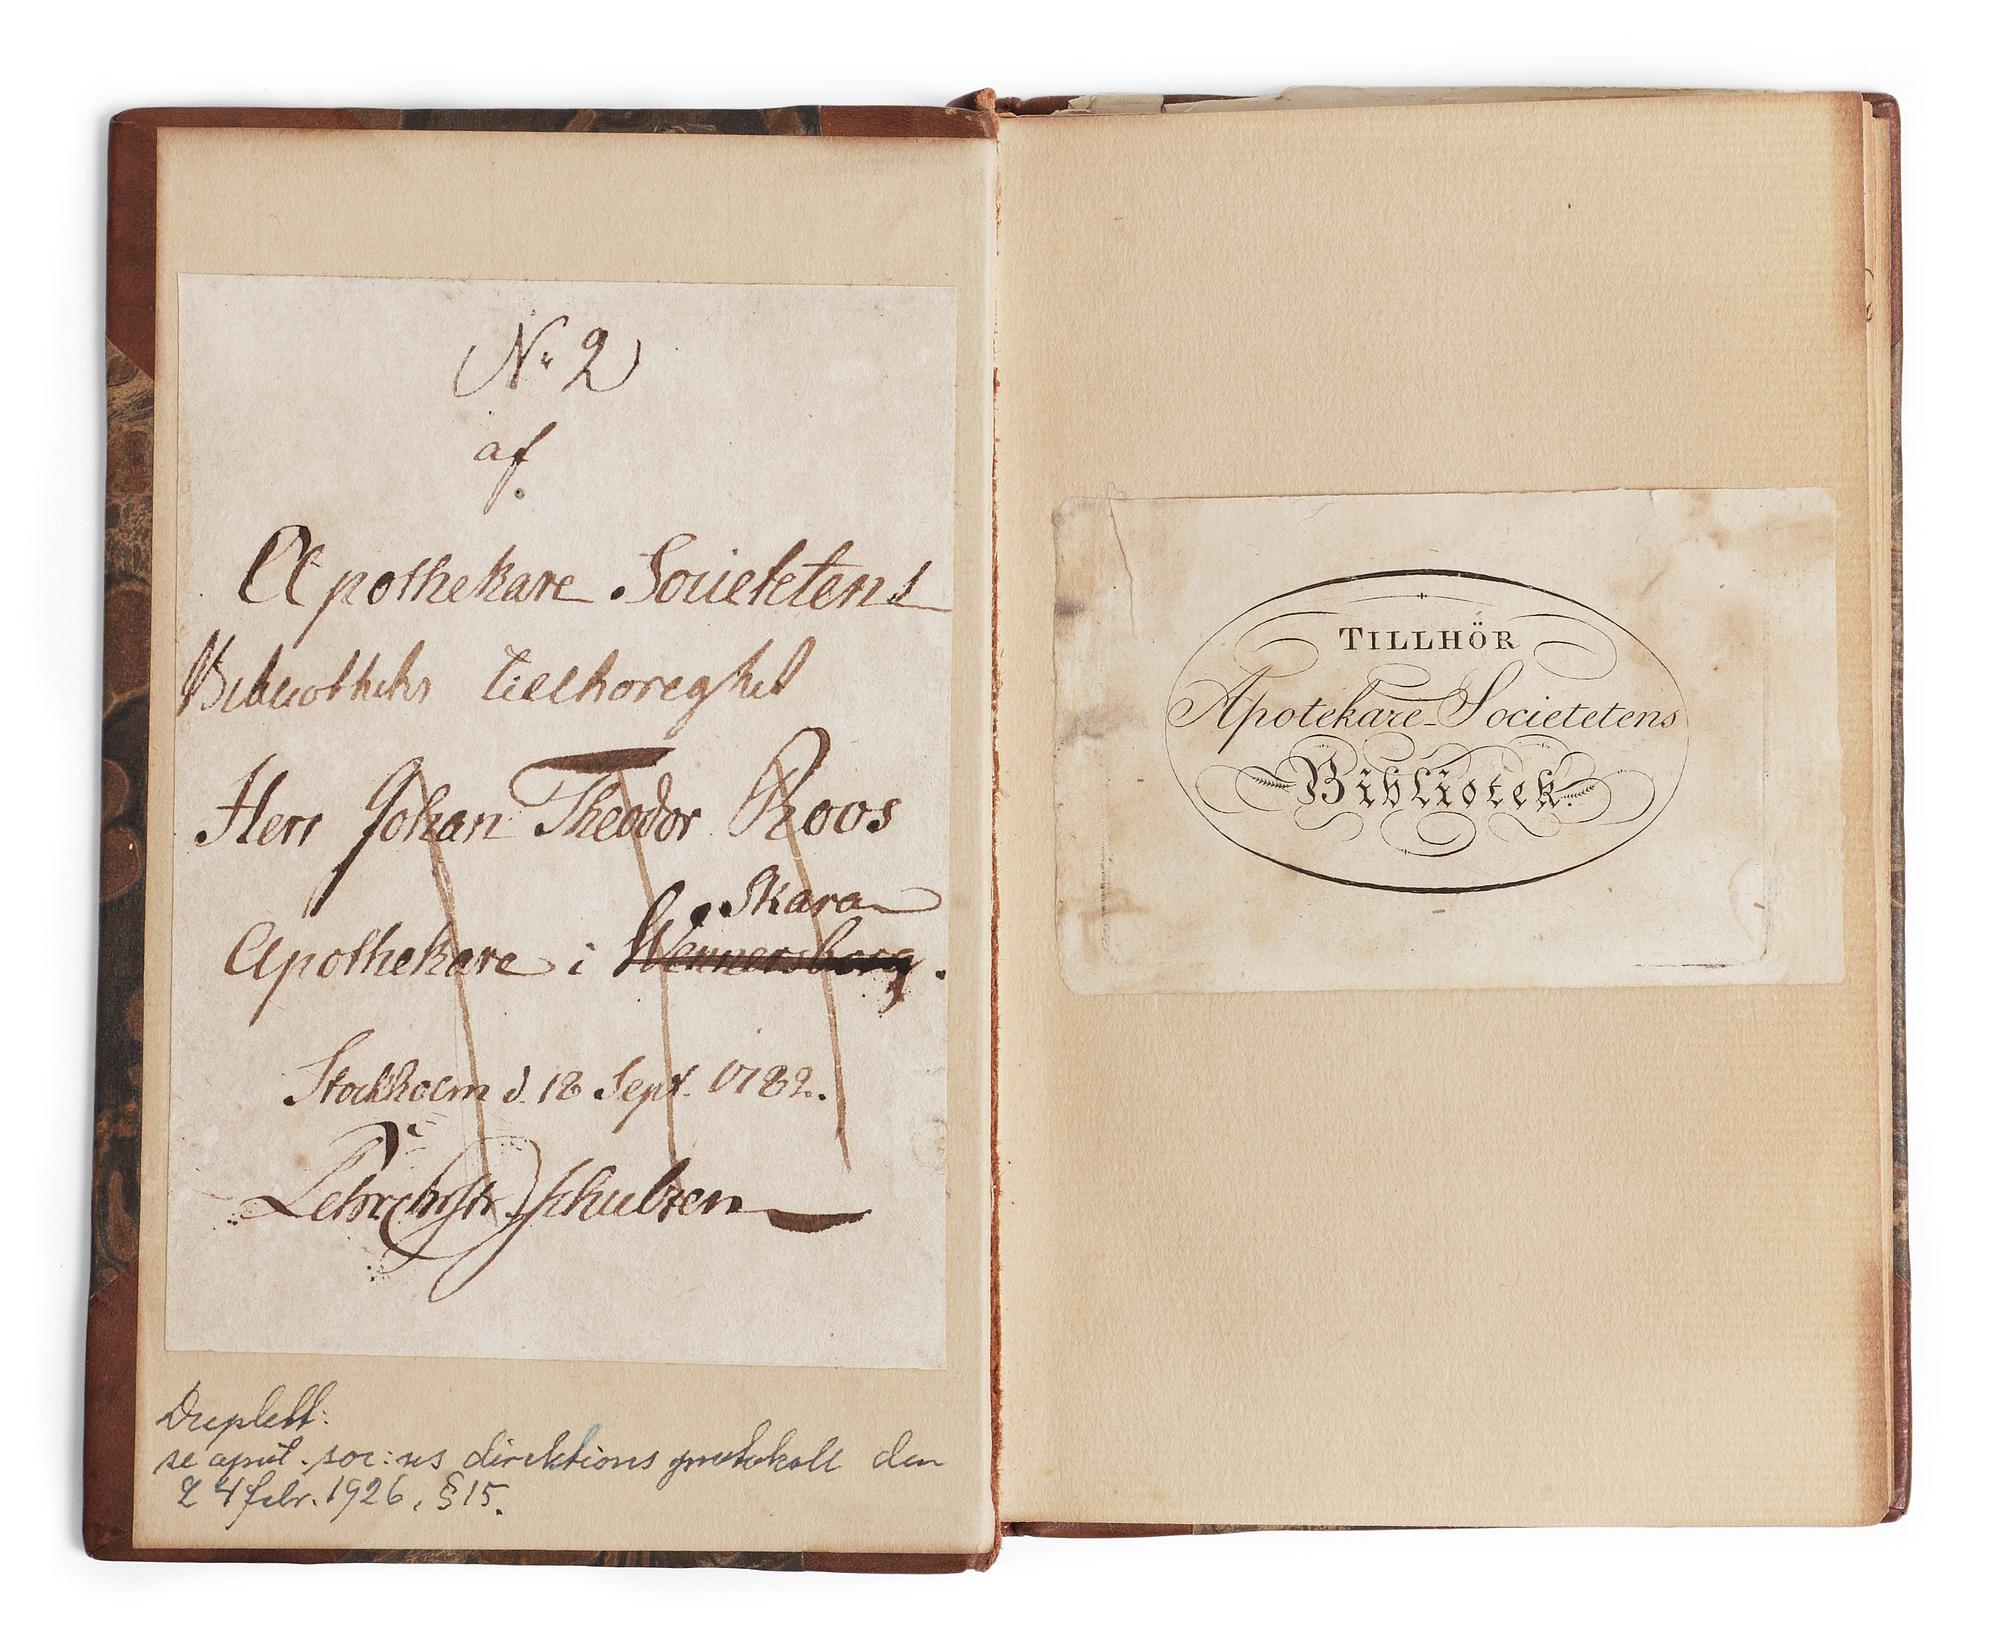 N:o 2
af
Apothekare Societetens
Bibliotheks tillhörighet
Herr Johan Theodor Roos
Skara
Apothekare i Wennersborg.
Stockholm d. 18 Sept. 1782.
Schulzen
Duplett:
se apot. soc:ns direktions protokoll den
24 febr. 1926, §15.
TILLHÖR
Apotekare-Societetens
Bibliotek.